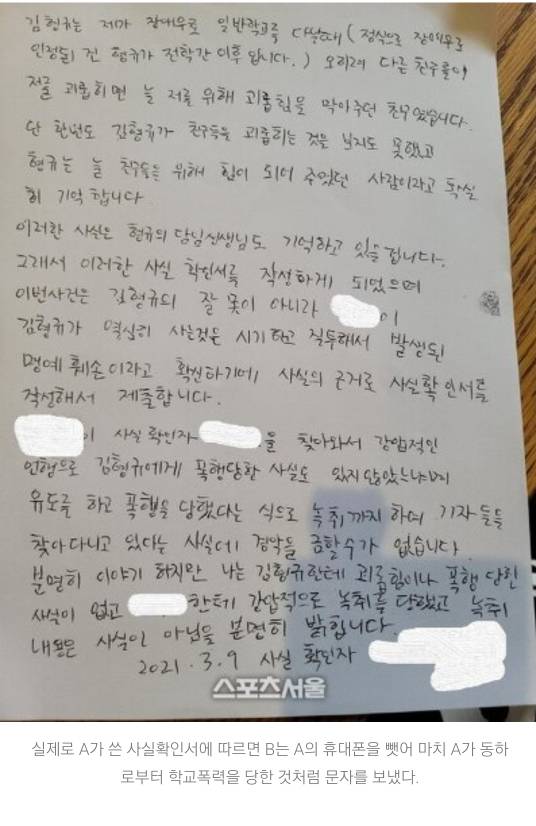 김형규는 제가 장애우로 일반학교를 다닐때 (정식으로 장애우로
인정된건 형규가 전학간 이후 입니다.) 오히려 다른 친구들이
저를 괴롭히면 늘 저를 위해 괴롭힘을 막아주던 친구였습니다.
단 한번도 김형규가 친구들을 괴롭히는 것을 보지도 못했고
형규는 늘 친구들을 위해 힘이 되어 주었던 사람이라고 똑똑
히 기억합니다
이러한 사실은 형규의 담임선생님도 기억하고 있을겁니다.
그래서 이러한 사실 확인서를 작성하게 되었으며
이번사건은 김형규의 잘못이 아니라 이
김형규가 열심히 사는것은 시기하고 질투해서 발생된
명예훼손이라고 확신하기에 사실의 근거로 사실확인서를
작성해서 제출합니다.
이 사실확인자 을 찾아와서 강압적인
언행으로 김형규에게 폭행당한 사실도 있지않았느냐며
유도를 하고 폭행을 당했다는 식으로 녹취까지 하여 기자들을
찾아다니고 있다는 사실에 경악을 금할수가 없습니다.
분명히 이야기 하지만 나는 김형규한테 괴롭힘이나 폭행 당한
사실이 없고 한테 강압적으로 녹취를 당했고 녹취
내용은 사실이 아님을 분명히 밝힙니다.
2021. 3. 9 사실 확인자
스포츠서울
실제로 A가 쓴 사실확인서에 따르면 B는 A의 휴대폰을 뺏어 마치 A가 동하
로부터 학교폭력을 당한 것처럼 문자를 보냈다.